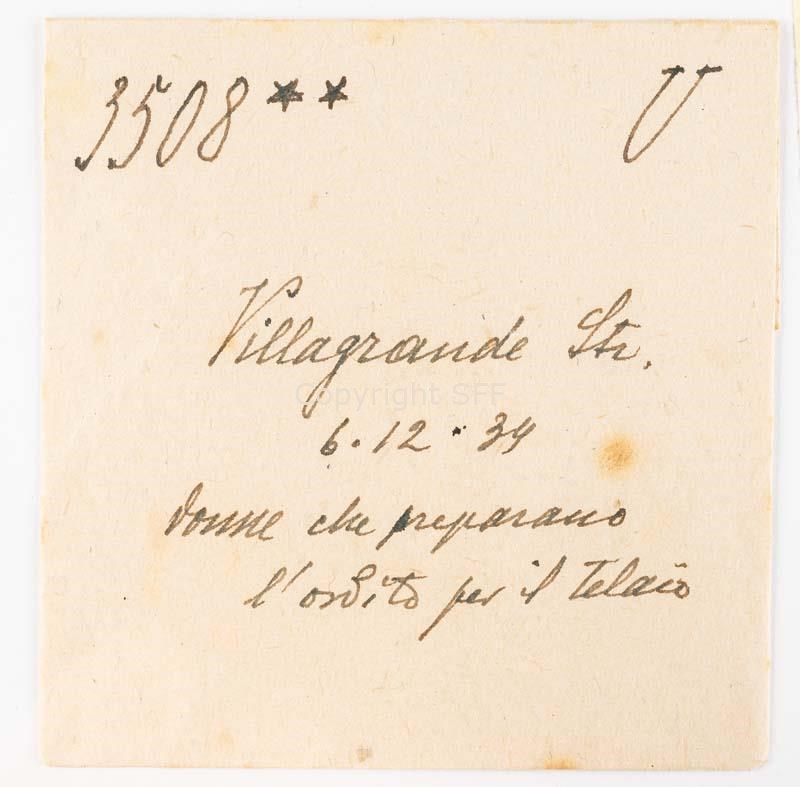 3508 ** U
Villagrande Str.
Copyright SFF
6.12.34
donne che preparano
l'ordito per il telaio